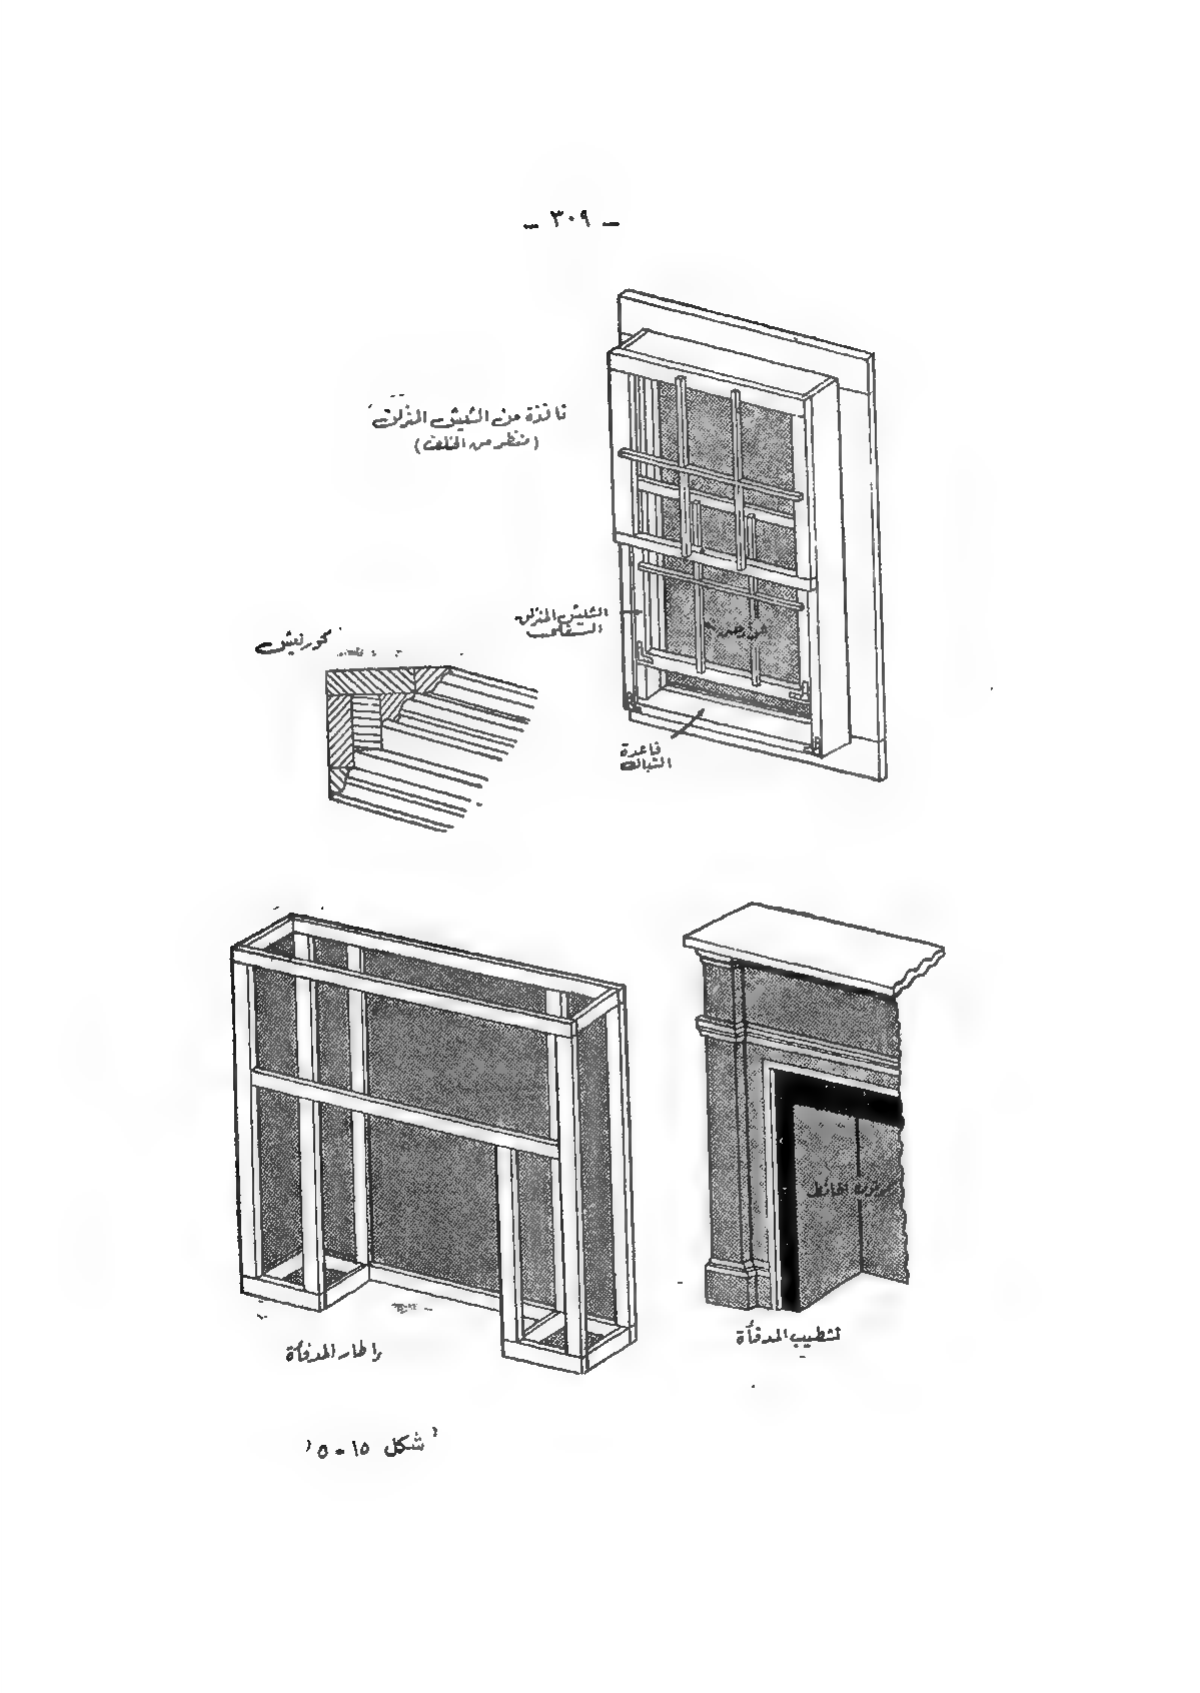 – ٣٠٩ –
نافذة من الشيش المنزلق
(منظر من الخلف)
الشيش المنزلق
السفلي
كورنيش
قاعدة
الشباك
الحائط
إطار المدفأة
تشطيب المدفأة
شكل ١٥ - ٥